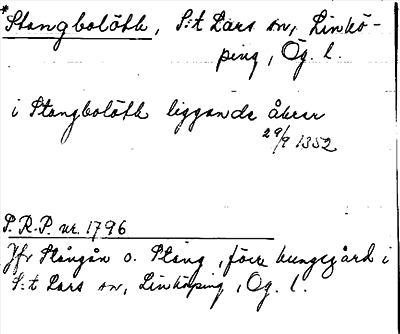 *Stangbolöth, S:t Lars sn, Linkö-
ping, Ög. l.
i Stangbolöth liggande åkrar
29/9 1352
P.R.P. nr. 1796
Jfr Stångån o. Stång, förr kungsgård i
S:t Lars sn, Linköping, Ög. l.